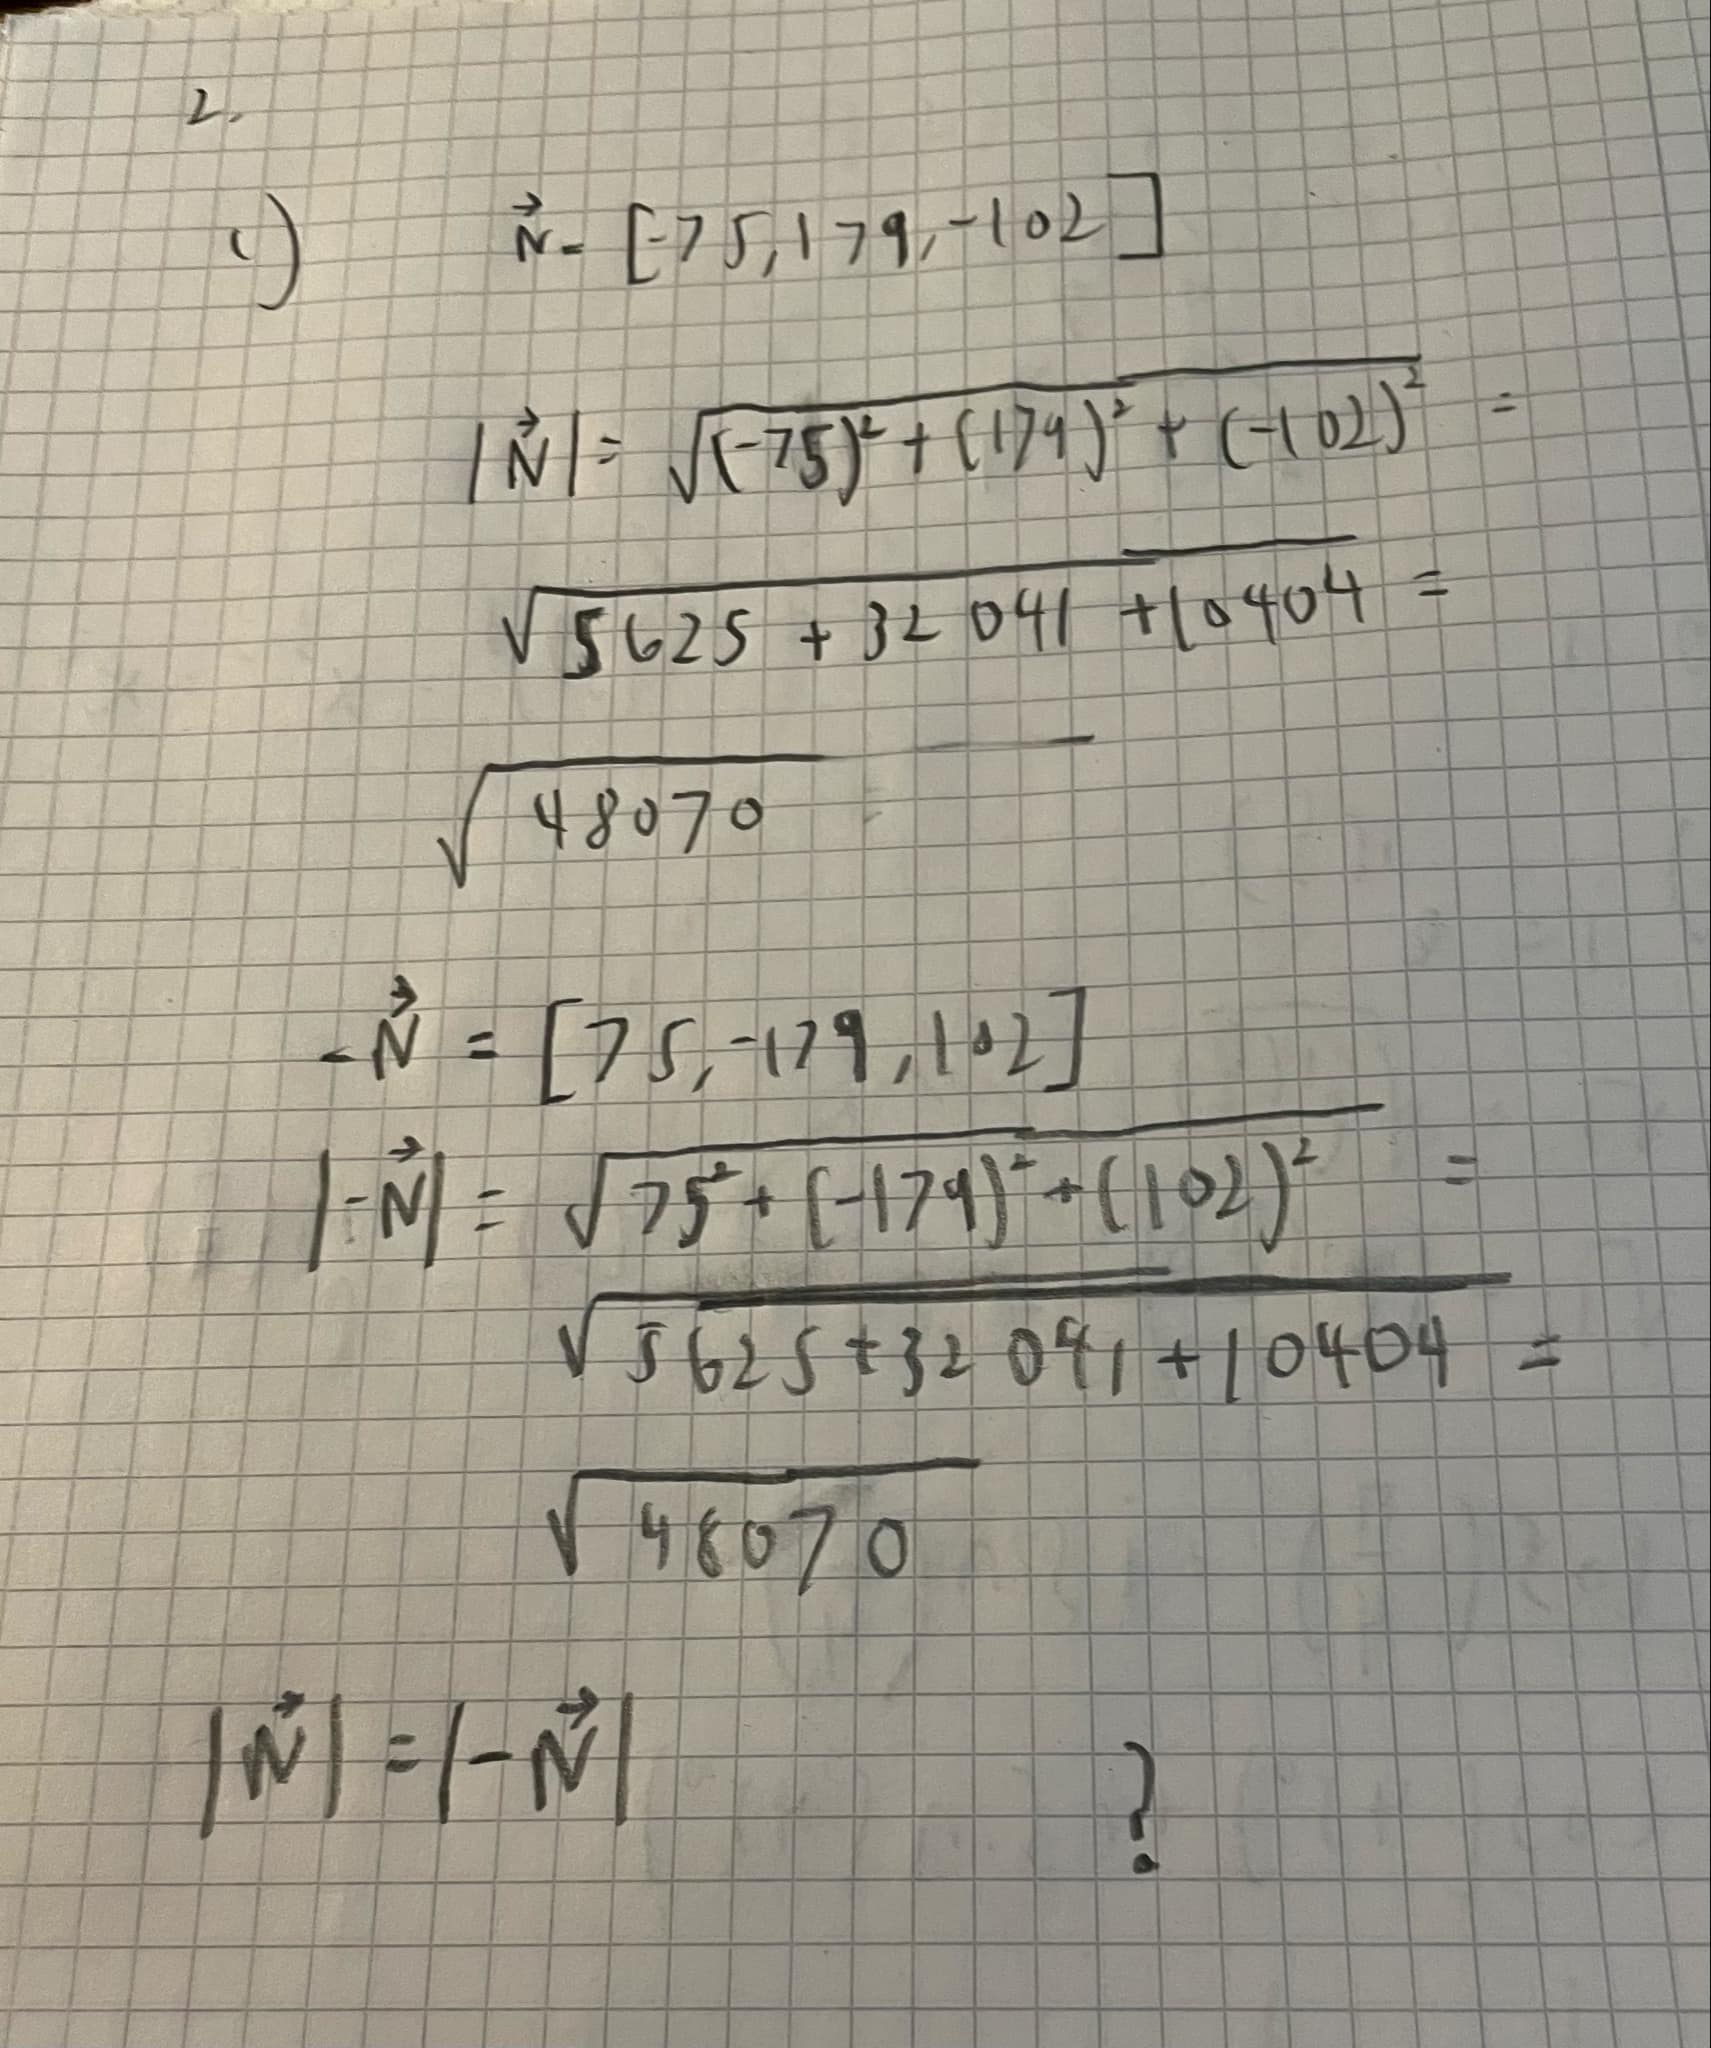 2.
c) N⃗ = [-75, 179, -102]
|N⃗| = √((-75)² + (179)² + (-102)²) =
√(5625 + 32041 + 10404) =
√48070
-N⃗ = [75, -179, 102]
|-N⃗| = √(75² + (-179)² + (102)²) =
√(5625 + 32041 + 10404) =
√48070
|N⃗| = |-N⃗| ?